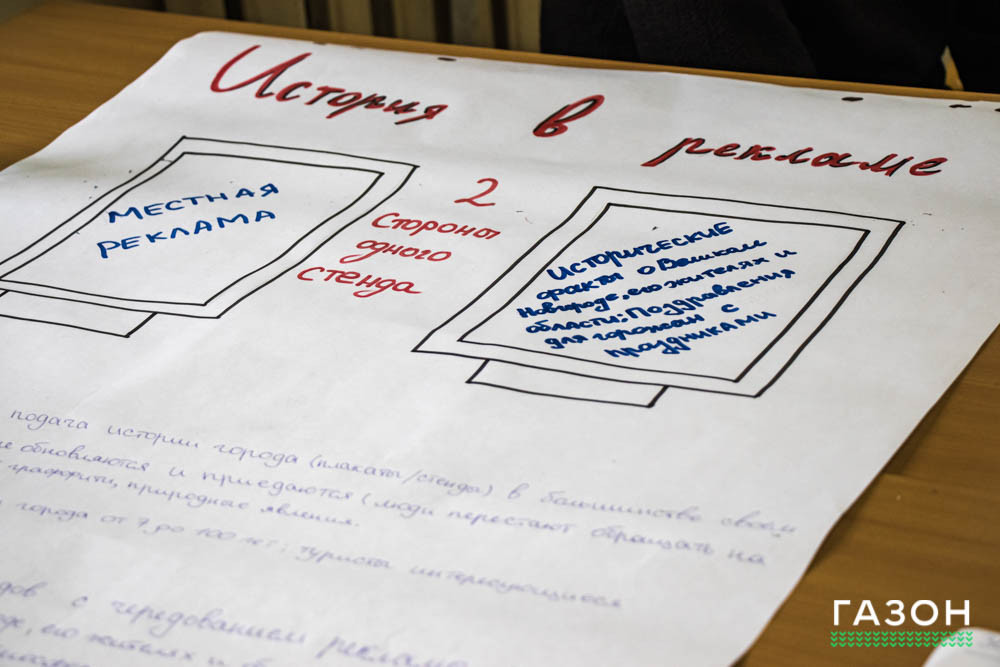 История в рекламе
МЕСТНАЯ
РЕКЛАМА
2
стороны
одного
стенда
ИСТОРИЧЕСКИЕ
факты о Великом
Новгороде, его жителях и
области; Поздравления
для горожан с
праздниками
подача истории города (плакаты/стенды) в большинстве своём
обновляются и приедаются (люди перестают обращать на
граффити, природные явления.
города от 7 до 100 лет; туристы интересующиеся
с чередованием рекламы
его жителях и
ГАЗОН